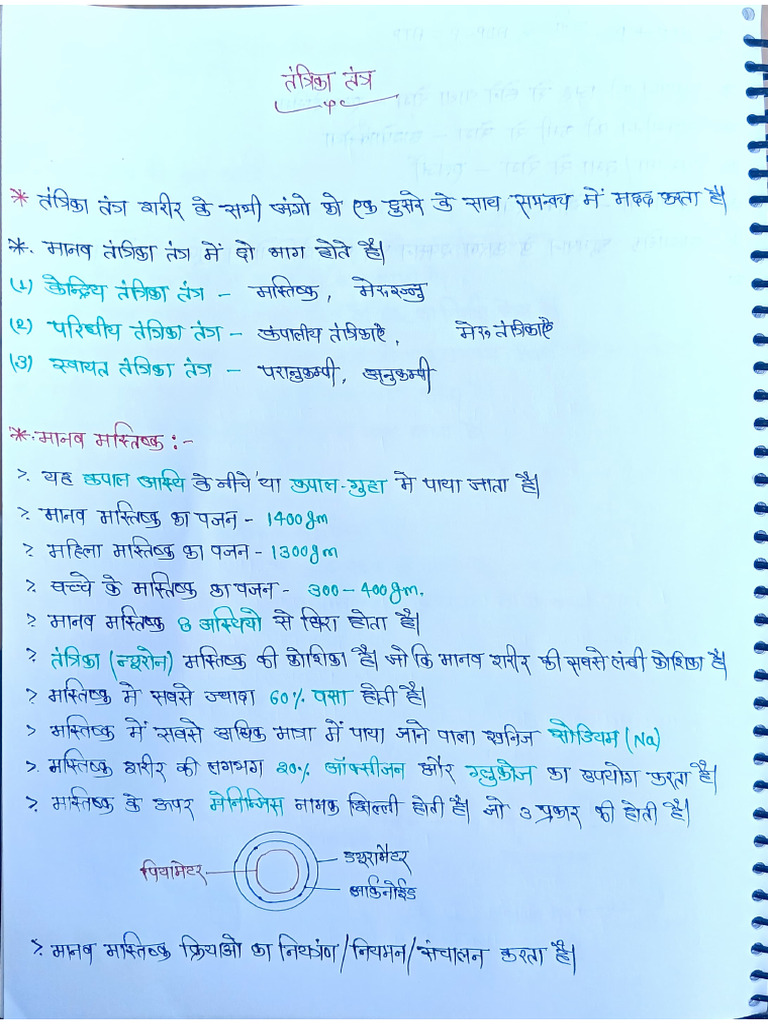 तंत्रिका तंत्र
* तंत्रिका तंत्र शरीर के सभी अंगो को एक दुसरे के साथ समन्वय में मदद करता है।
*. मानव तंत्रिका तंत्र में दो भाग होते है।
(1) केन्द्रिय तंत्रिका तंत्र - मस्तिष्क, मेरुरज्जु
(2) परिधीय तंत्रिका तंत्र - कपालीय तंत्रिकाऐं, मेरु तंत्रिकाऐं
(3) स्वायत तंत्रिका तंत्र - परानुकम्पी, अनुकम्पी
*. मानव मस्तिष्क :-
>. यह कपाल अस्थि के नीचे या कपाल-गुहा मे पाया जाता है।
>. मानव मस्तिष्क का वजन - 1400gm
>. महिला मस्तिष्क का वजन - 1300gm
>. बच्चे के मस्तिष्क का वजन - 300-400gm.
>. मानव मस्तिष्क 8 अस्थियो से घिरा होता है।
>. तंत्रिका (न्यूरोन) मस्तिष्क की कोशिका है। जो कि मानव शरीर की सबसे लंबी कोशिका है
>. मस्तिष्क मे सबसे ज्यादा 60% वसा होती है।
> मस्तिष्क में सबसे अधिक मात्रा में पाया जाने वाला खनिज सोडियम (Na)
>. मस्तिष्क शरीर की लगभग 20% ऑक्सीजन और ग्लुकोज का उपयोग करता है।
>. मस्तिष्क के ऊपर मेनिन्जिस नामक झिल्ली होती है। जो 3 प्रकार की होती है।
ड्यूरामैटर
पियामेटर
अर्कनोईड
>. मानव मस्तिष्क क्रियाओ का नियंत्रण/नियमन/संचालन करता है।